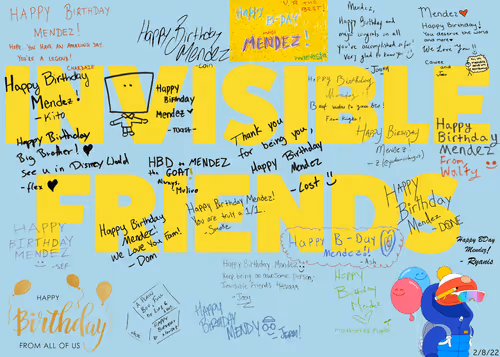 INVISIBLE
FRIENDS
HAPPY BIRTHDAY
MENDEZ!
HOPE YOU HAVE AN AMAZING DAY.
YOU'RE A LEGEND!
Happy Birthday
Mendez
HAPPY B-DAY
MENDEZ!
Mendez,
Happy Birthday and
my
you've accomplished so far!
Very glad to know you
Mendez
Happy Birthday!
You deserve the world
and more
We Love You!!
Happy Birthday
Mendez!
- Kito
Happy
Birthday
Mendez
- TOAST -
Happy Birthday
Big Brother!
See u in Disney World
- flex
HBD to MENDEZ
the GOAT
Always,
Thank you
for being you,
Happy Birthday
Mendez
- Lost
Happy Birthday
Happy Birthday
Mendez
Happy
Birthday
Mendez
From
Walty
Happy Birthday
Mendez!
We Love You Fam!
- Dom
Happy Birthday Mendez!
You are truly a 1/1.
Happy
Birthday
Mendez - DONE
HAPPY
BIRTHDAY
MENDEZ
- SEF
Happy B-Day
Mendez!
Happy BDay
Mendez!
- Ryanis
Happy Birthday Mendez
Keep being an awesome person!
Invisible Friends
HAPPY
Birthday
FROM ALL OF US
HAPPY
BIRTHDAY
MENDY
Happy
Birthday
Mendez
2/8/22